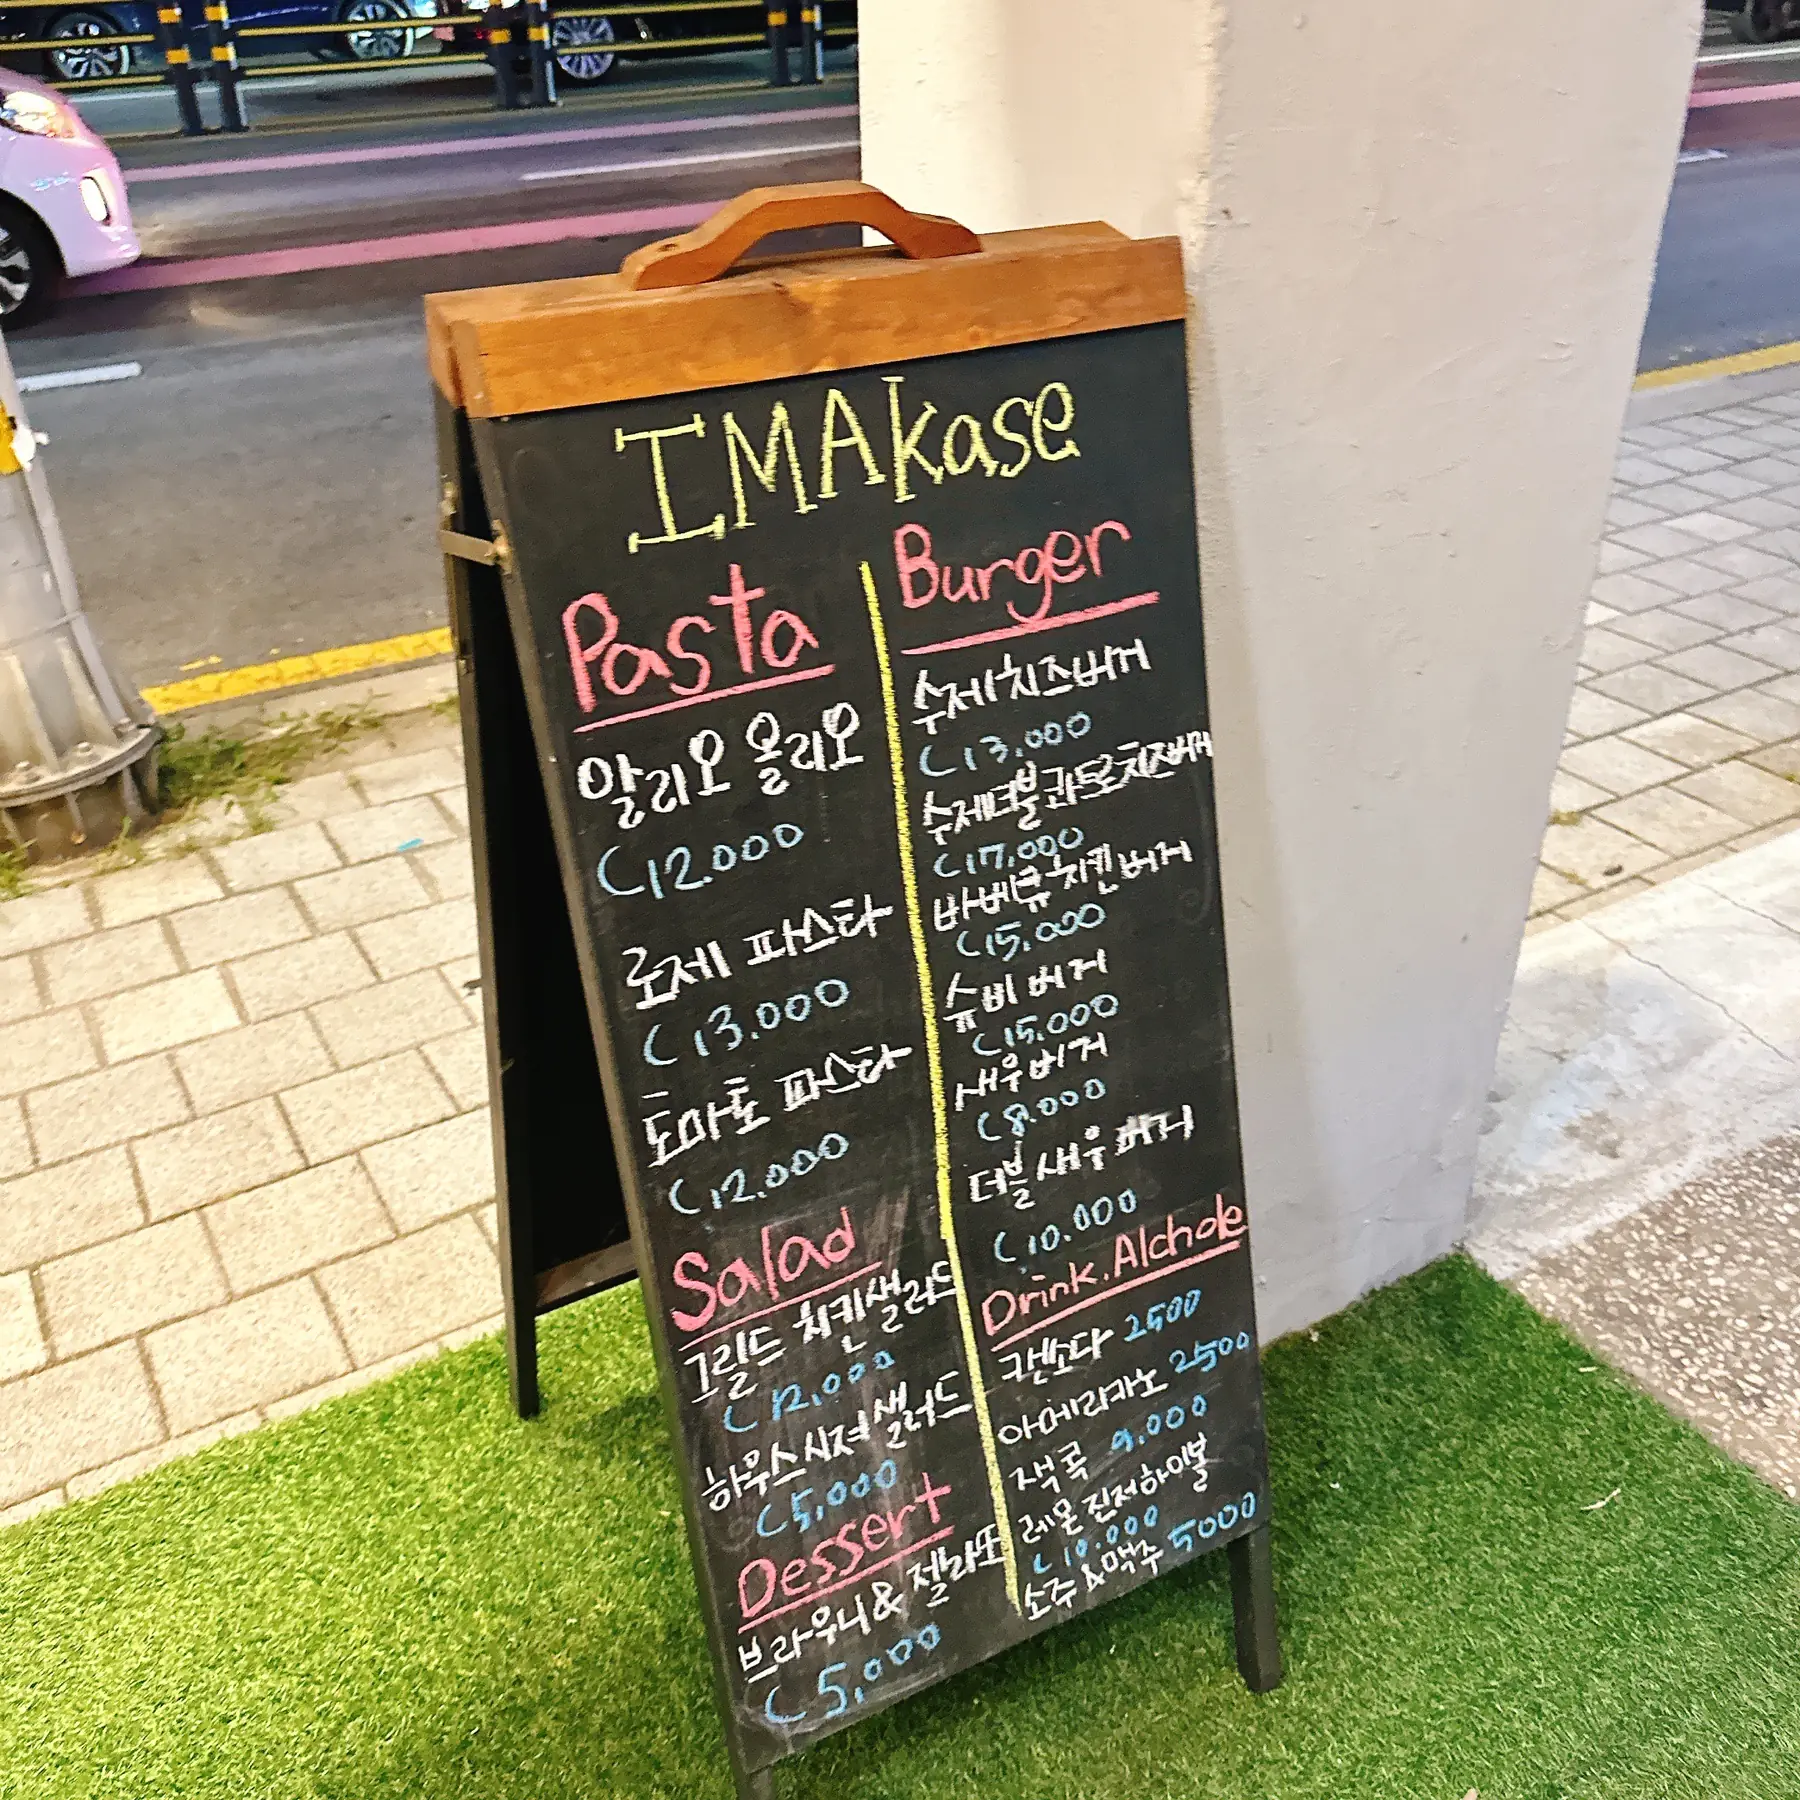 IMAkase
Pasta
알리오 올리오
12.000
로제 파스타
13.000
토마토 파스타
12.000
Salad
그릴드 치킨샐러드
12,000
하우스시져샐러드
5,000
Dessert
브라우니& 젤라또
5,000
Burger
수제치즈버거
13.000
수제더블콰트로치즈버거
17,000
바베큐치킨버거
15,000
슈비버거
15,000
새우버거
8.000
더블새우버거
10.000
Drink.Alchole
캔소다 2500
아메리카노 2500
잭콕 9.000
레몬진저하이볼
10.000
소주&맥주 5000